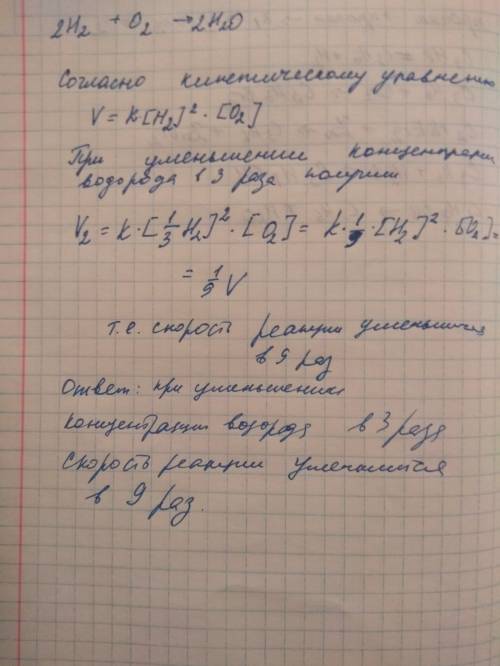 2H₂ + O₂ → 2H₂O
Согласно кинетическому уравнению
V = k·[H₂]²·[O₂]
При уменьшении концентрации
водорода в 3 раза получим
V₂ = k·[1/3 H₂]²·[O₂] = k·1/9·[H₂]²·[O₂] =
= 1/9 V
т.е. скорость реакции уменьшится
в 9 раз
Ответ: при уменьшении
концентрации водорода в 3 раза
скорость реакции уменьшится
в 9 раз.